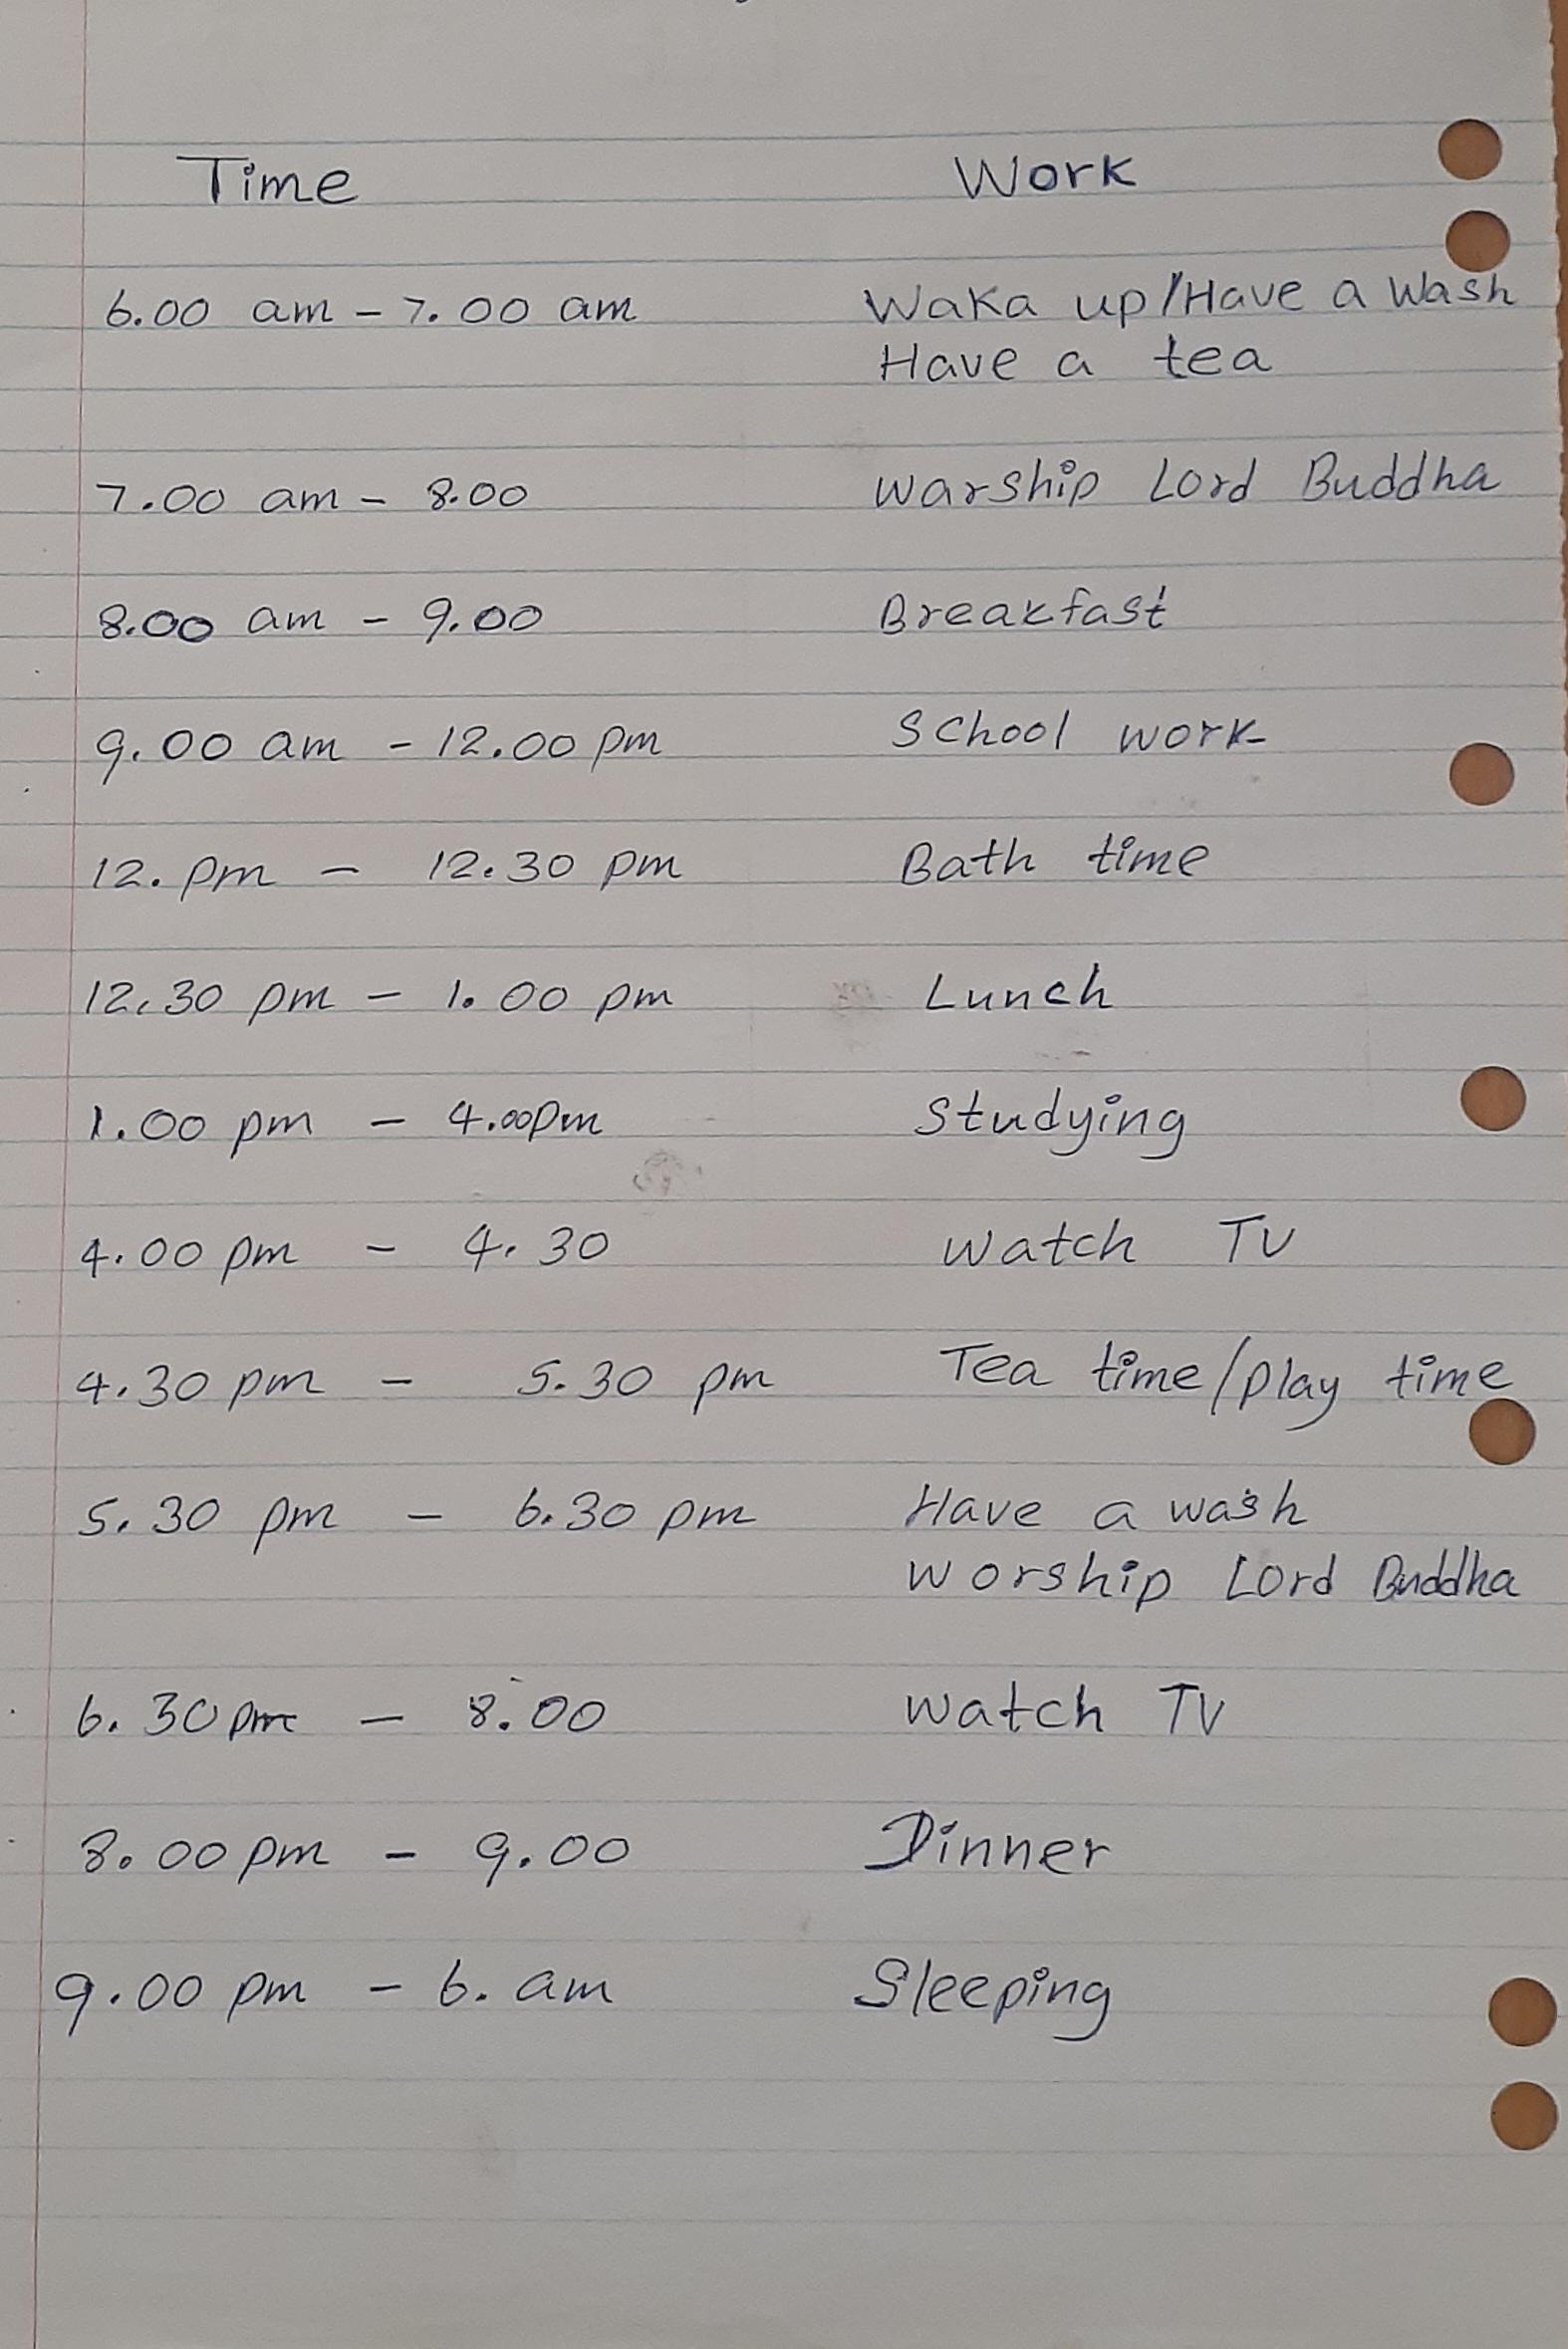 Time Work
6.00 am - 7.00 am Waka up/Have a Wash
Have a tea
7.00 am - 8.00 Warship Lord Buddha
8.00 am - 9.00 Breakfast
9.00 am - 12.00 pm School work
12. pm - 12.30 pm Bath time
12.30 pm - 1.00 pm Lunch
1.00 pm - 4.00pm Studying
4.00 pm - 4.30 Watch TV
4.30 pm - 5.30 pm Tea time/play time
5.30 pm - 6.30 pm Have a wash
Worship Lord Buddha
6.30pm - 8.00 Watch TV
8.00 pm - 9.00 Dinner
9.00 pm - 6. am Sleeping